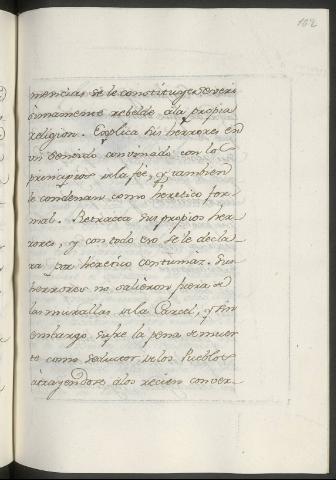 102
mencias se le constituye severi
simamente rebelde âla propia
religion. Explica sus herrores en
un sentido convinado con los
principios de la fée, y tambien
le condenan como heretico for-
mal. Retracta sus propios her
rores, y con todo eso se le decla
ra por heretico contumaz. Sus
herrores no salieron fuera de
las murallas de la Carcel, y sin
embargo sufre la pena de muer
te como seductor de los Pueblos
atrayendose alos recien conver-